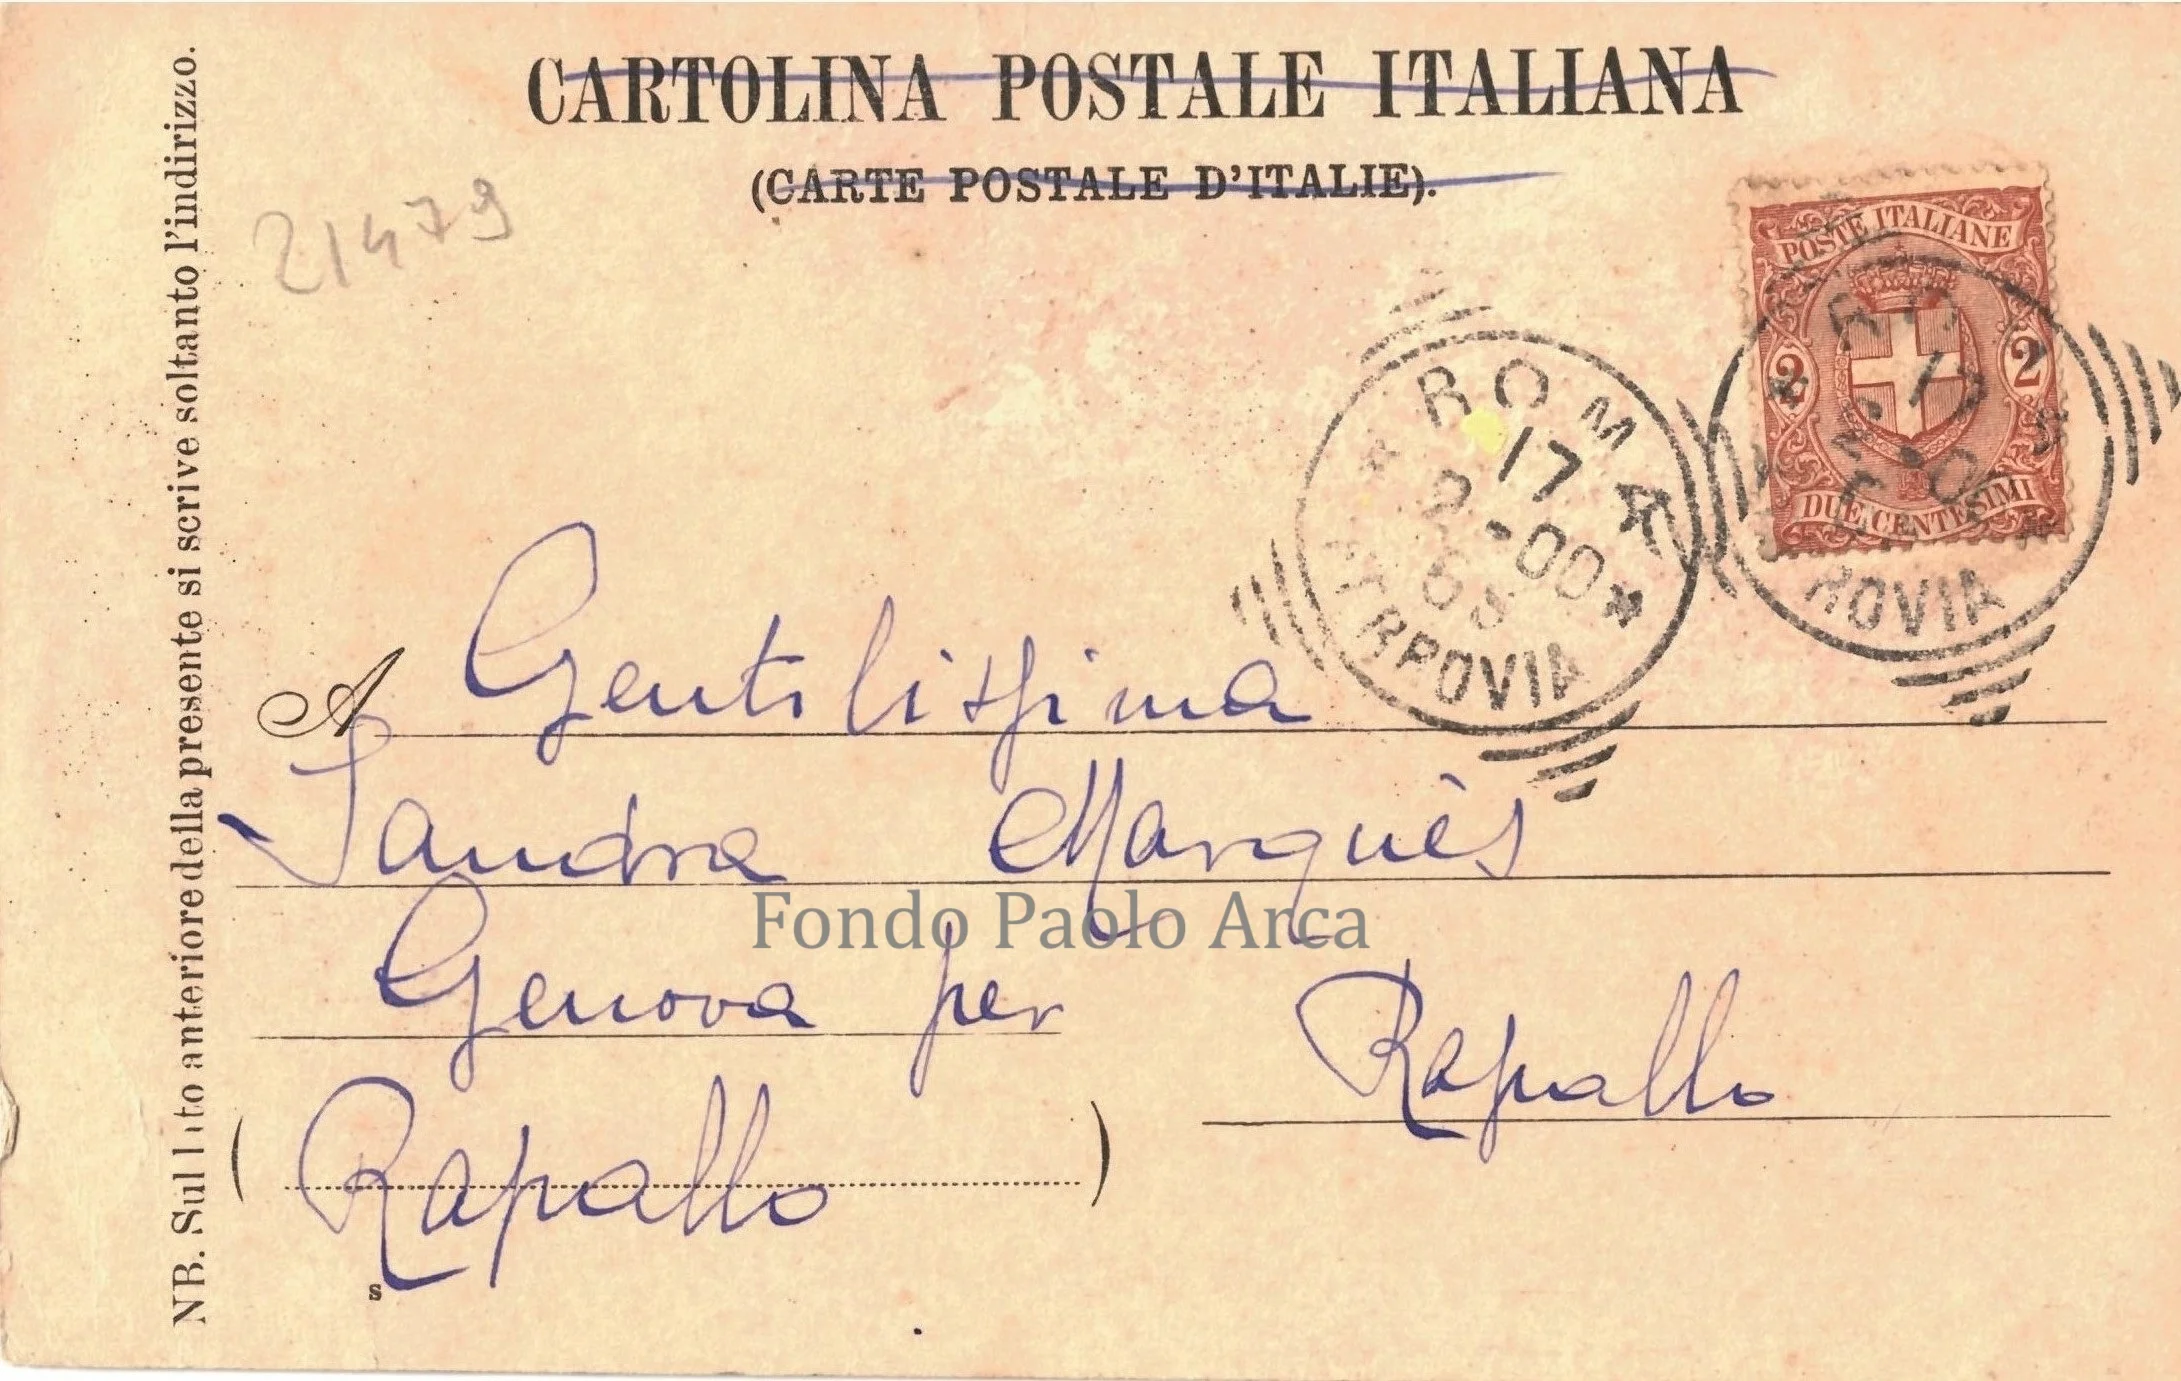 CARTOLINA POSTALE ITALIANA
(CARTE POSTALE D'ITALIE).
21479
POSTE ITALIANE
2 2
DUE CENTESIMI
ROMA
17
2-00
FERROVIA
17
ROVIA
A Gentilissima
Sandra Marquès
Fondo Paolo Arca
Genova per
Rapallo
(Rapallo)
s
NB. Sul lato anteriore della presente si scrive soltanto l'indirizzo.